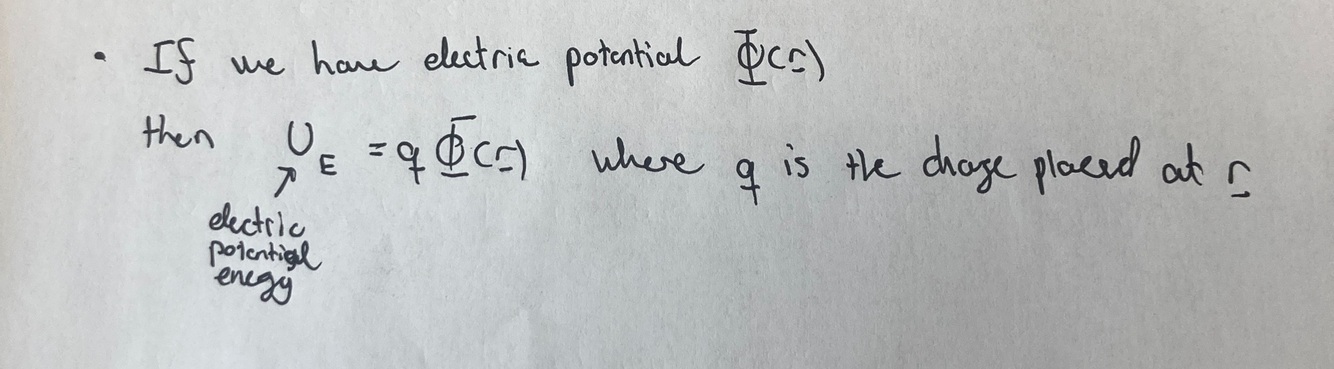 • If we have electric potential Φ(r)
then U_E = q Φ(r) where q is the charge placed at r
↗
electric
potential
energy